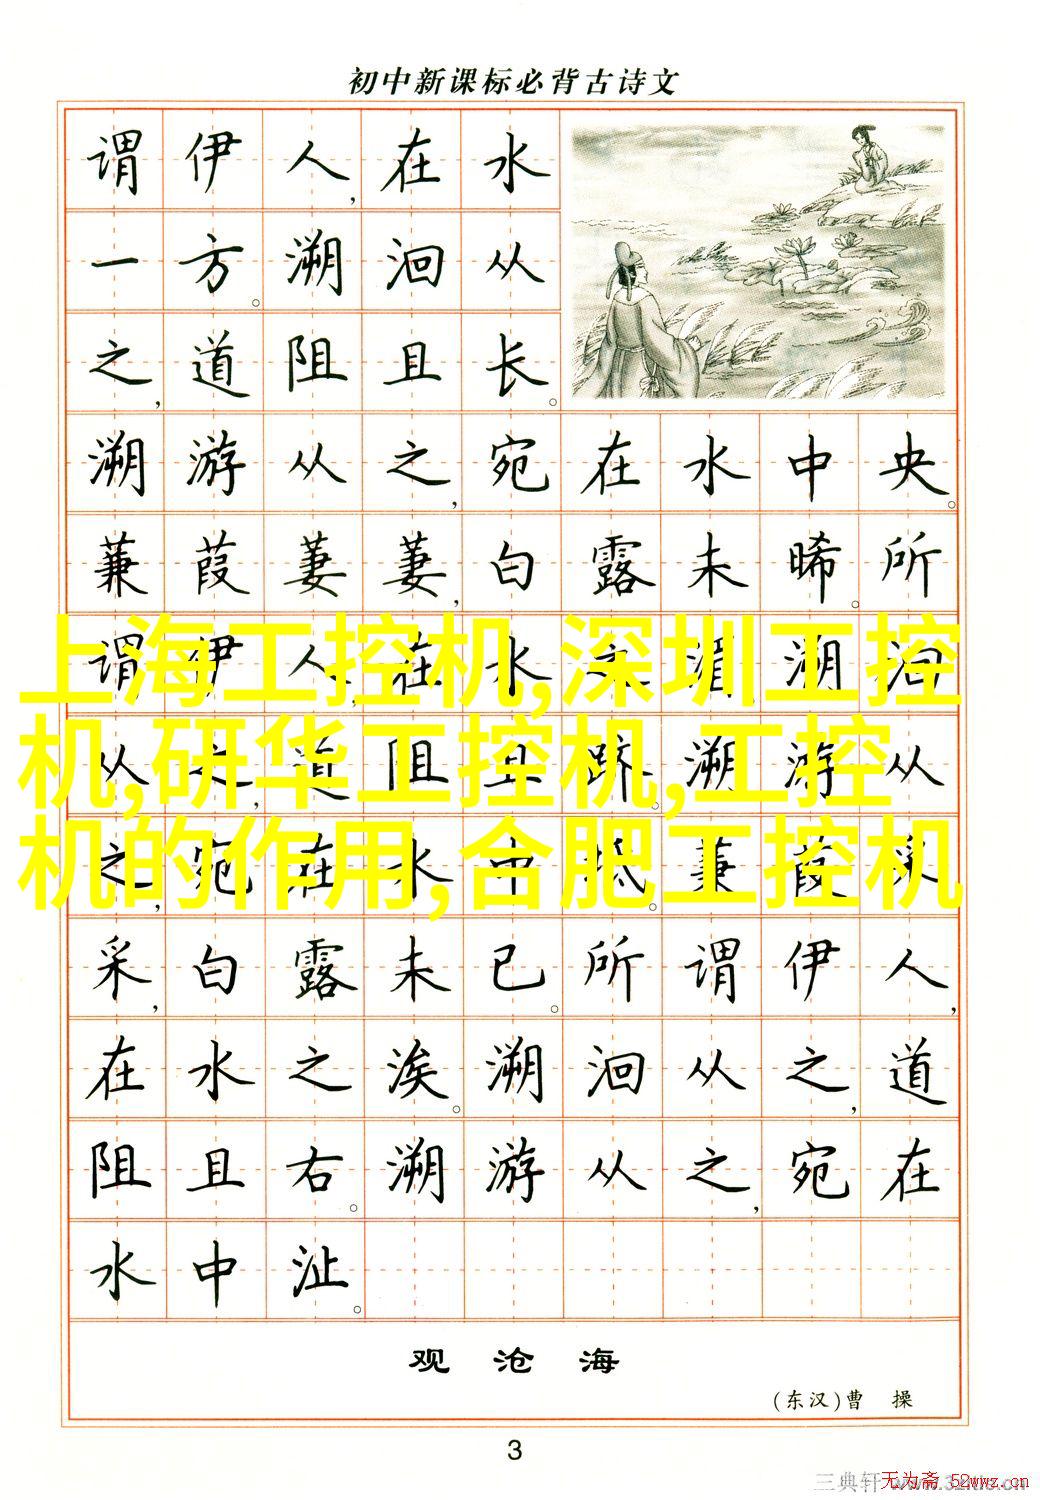 初中新课标必背古诗文
谓伊人,在水
一方。溯洄从
之,道阻且长。
溯游从之,宛在水中央。
蒹葭萋萋,白露未晞。所
谓伊人,在水之湄。溯洄
从之,道阻且跻。溯游从
之,宛在水中坻。蒹葭采
采,白露未已。所谓伊人,
在水之涘。溯洄从之,道
阻且右。溯游从之,宛在
水中沚。
上海工控机,深圳工控
机,研华工控机,工控
机的作用,合肥工控机
观沧海
(东汉)曹 操
3
三典轩
无为斋 52wwz.cn